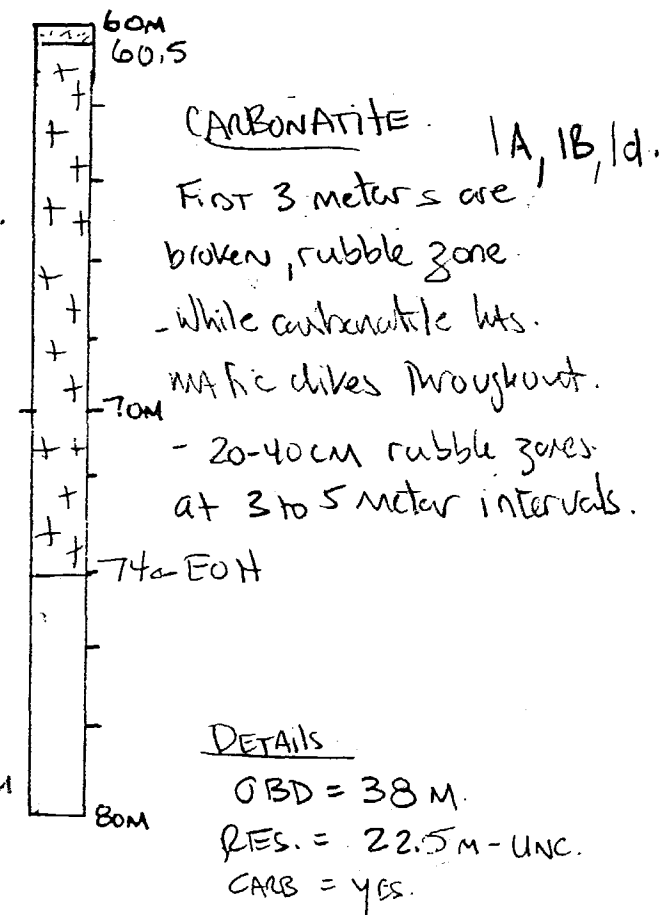 60M
60.5
CARBONATITE. 1A, 1B, 1d.
First 3 meters are
broken, rubble zone.
- While carbonatite
mafic dikes throughout.
70M
- 20-40cm rubble zones.
at 3 to 5 meter intervals.
74 EOH
DETAILS
OBD = 38 M.
RES. = 22.5 M - UNC.
CARB = YES.
80M